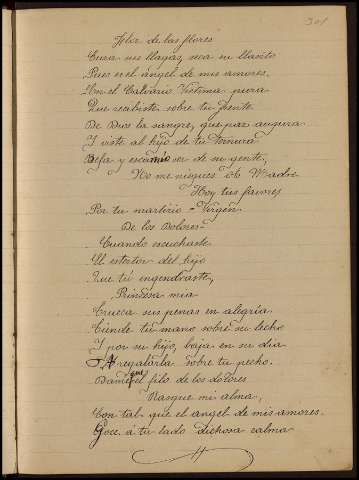 301
Flor de las flores
Cura sus llagas, seca su llanto
Pues es el angel de mis amores.
En el Calvario Victima pura
Que recibiste sobre tu frente
De Dios la sangre, que paz augura
I viste al hijo de tu ternura
Befa y escarnio ser de su gente,
No me niegues oh Madre
Hoy tus favores
Por tu martirio - Virgen
De los Dolores -
Cuando escuchaste
El estertor del hijo
Que tú engendraste,
Princesa mia
Trueca sus penas en alegria
Tiende tu mano sobre su lecho
I por su hijo, baja en su dia
A regalarla sobre tu pecho.
Dame que el filo de los dolores
Rasgue mi alma,
Con tal que el angel de mis amores.
Goce á tu lado dichosa calma